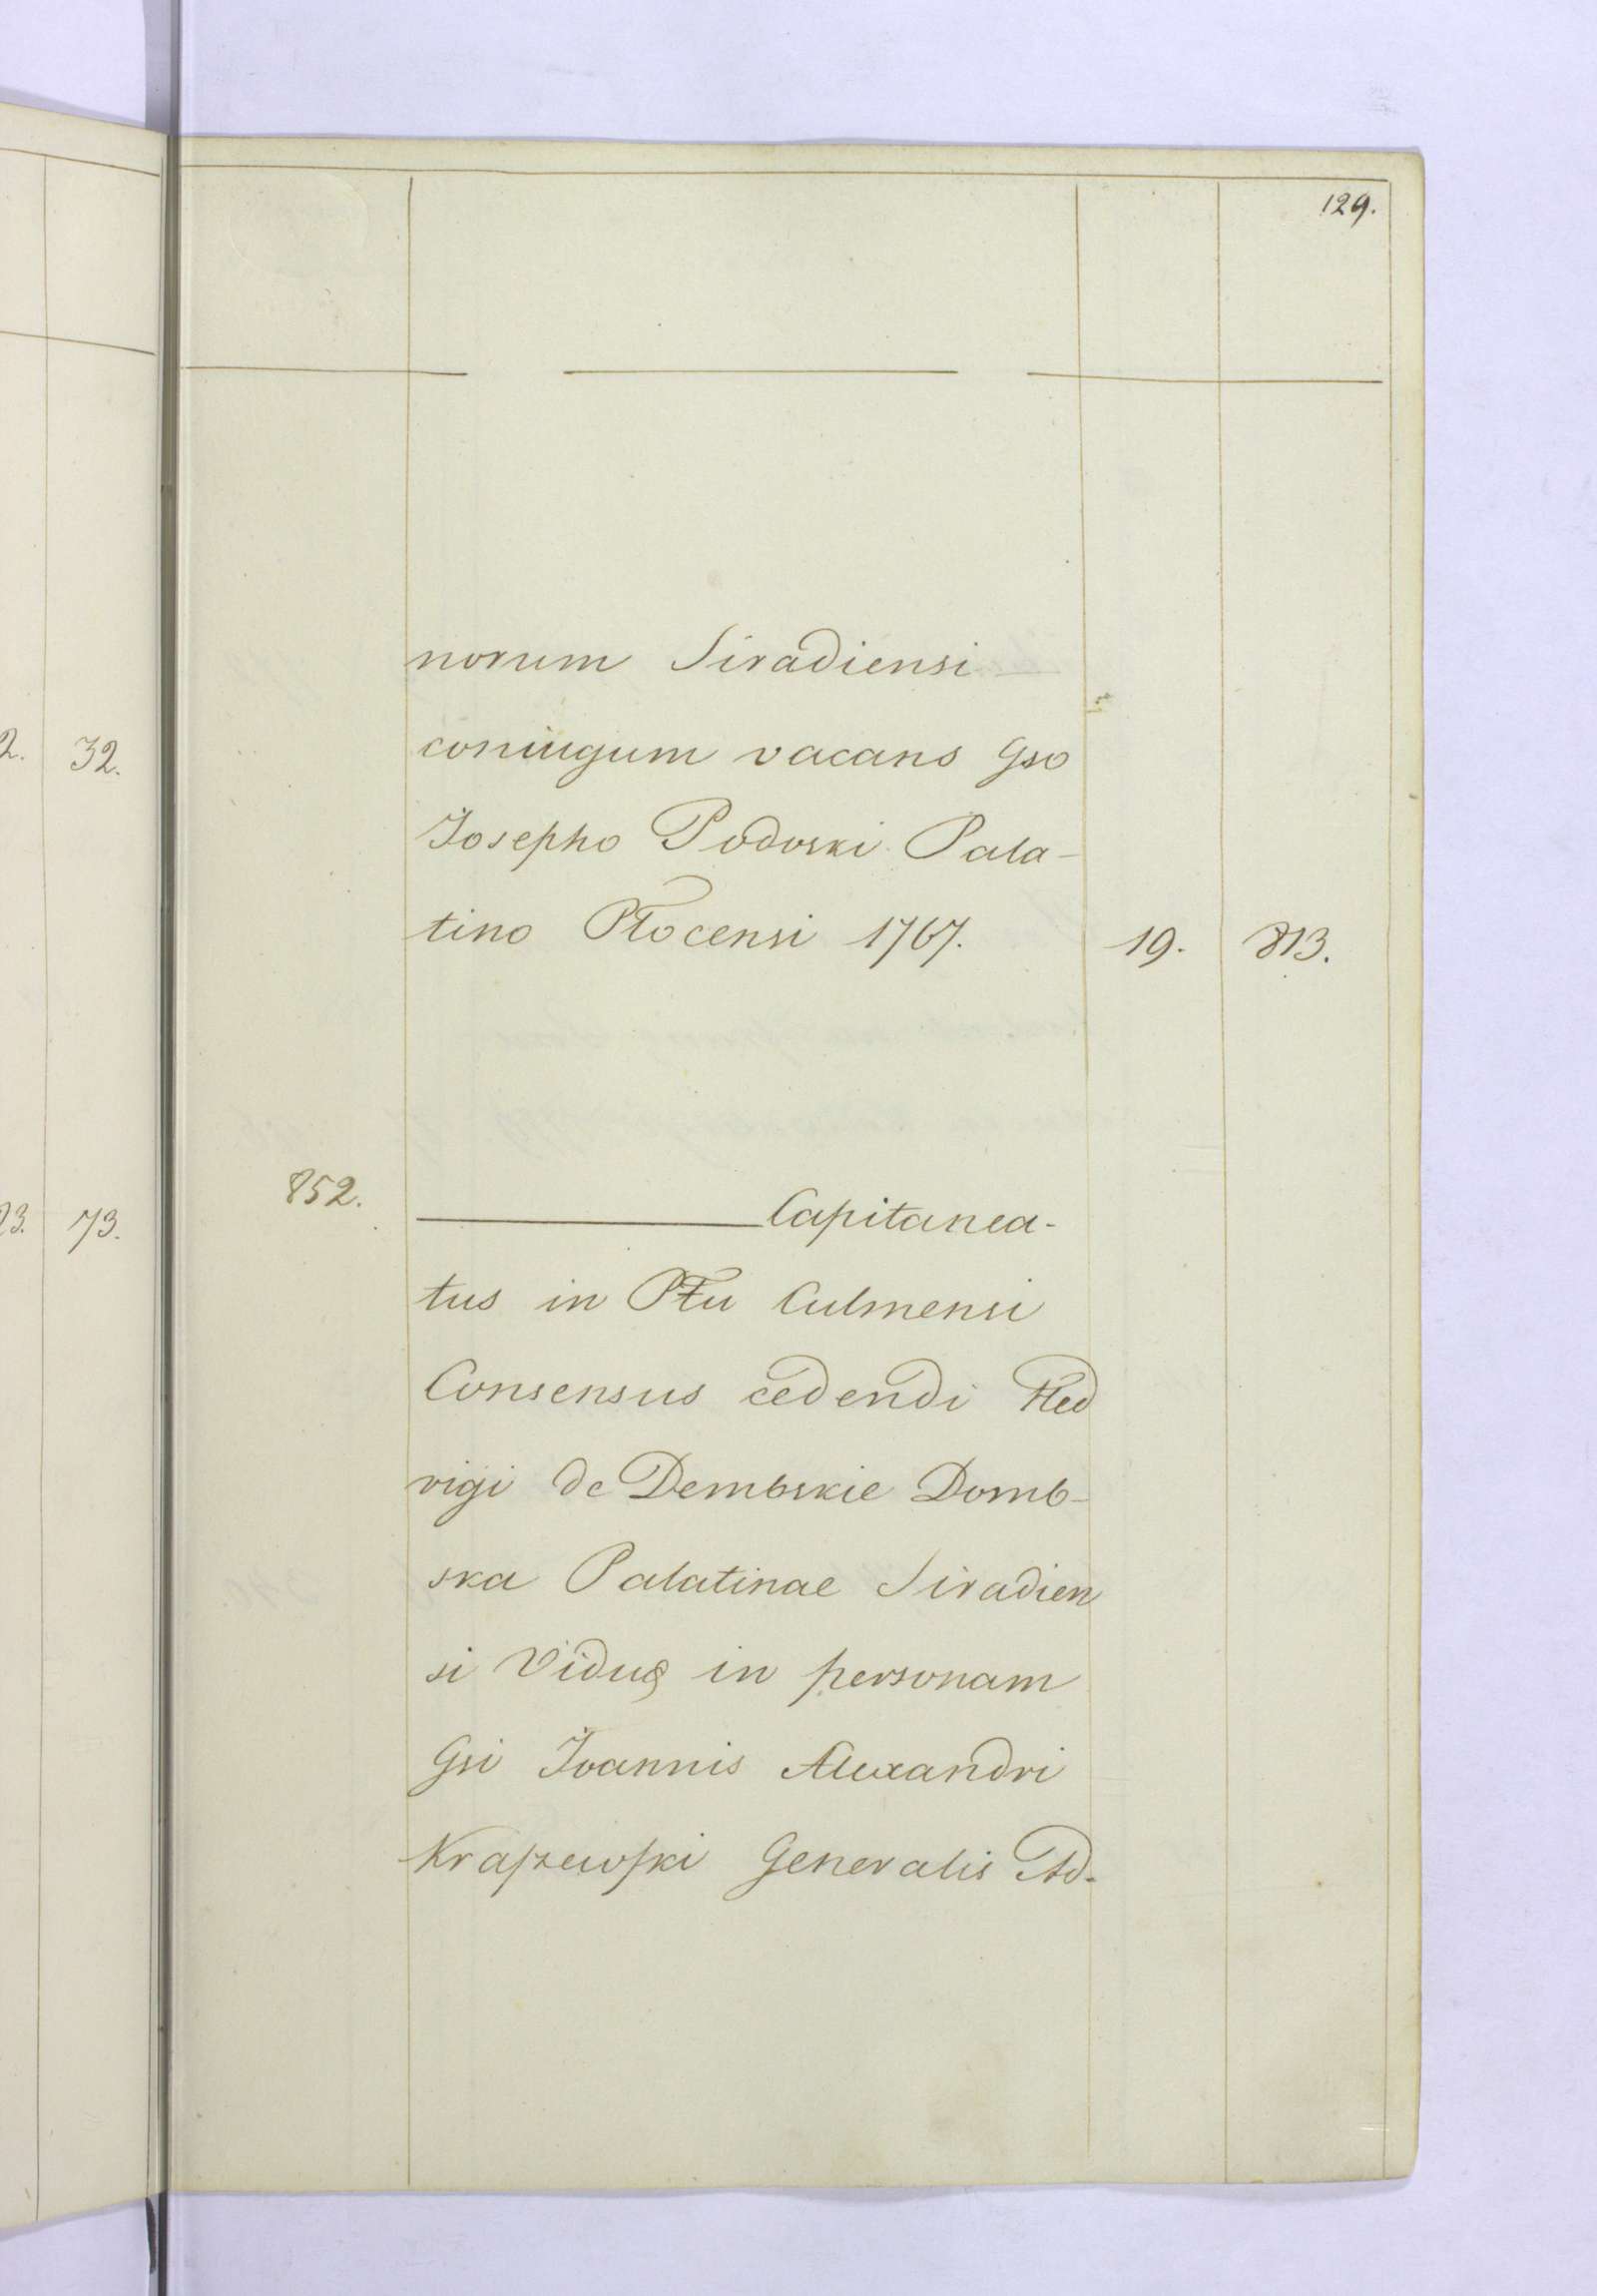 129.
norum Siradiensi
coniugum vacans Gso
Josepho Podoski Pala-
tino Płocensi 1767. 19. 813.
852. Capitanea-
tus in Płtu Culmensi
Consensus cedendi Hed
vigi de Dembskie Domb-
ska Palatinae Siradien
si Viduę in personam
Gsi Joannis Alexandri
Kraszewski Generalis Ad-
2. 32.
23. 73.